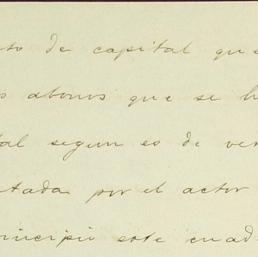 to de capital que
s abonos que se h
tal segun es de ver
tada por el actor
rincipió este cuad